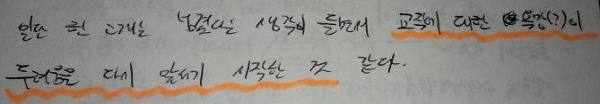 일단 한 고개는 넘겼다는 생각이 들면서 교직에 대한 욕망(?)이
두려움을 다시 앞서기 시작한 것 같다.